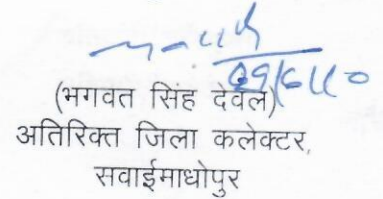 (भगवत सिंह देवल)
अतिरिक्त जिला कलेक्टर,
सवाईमाधोपुर